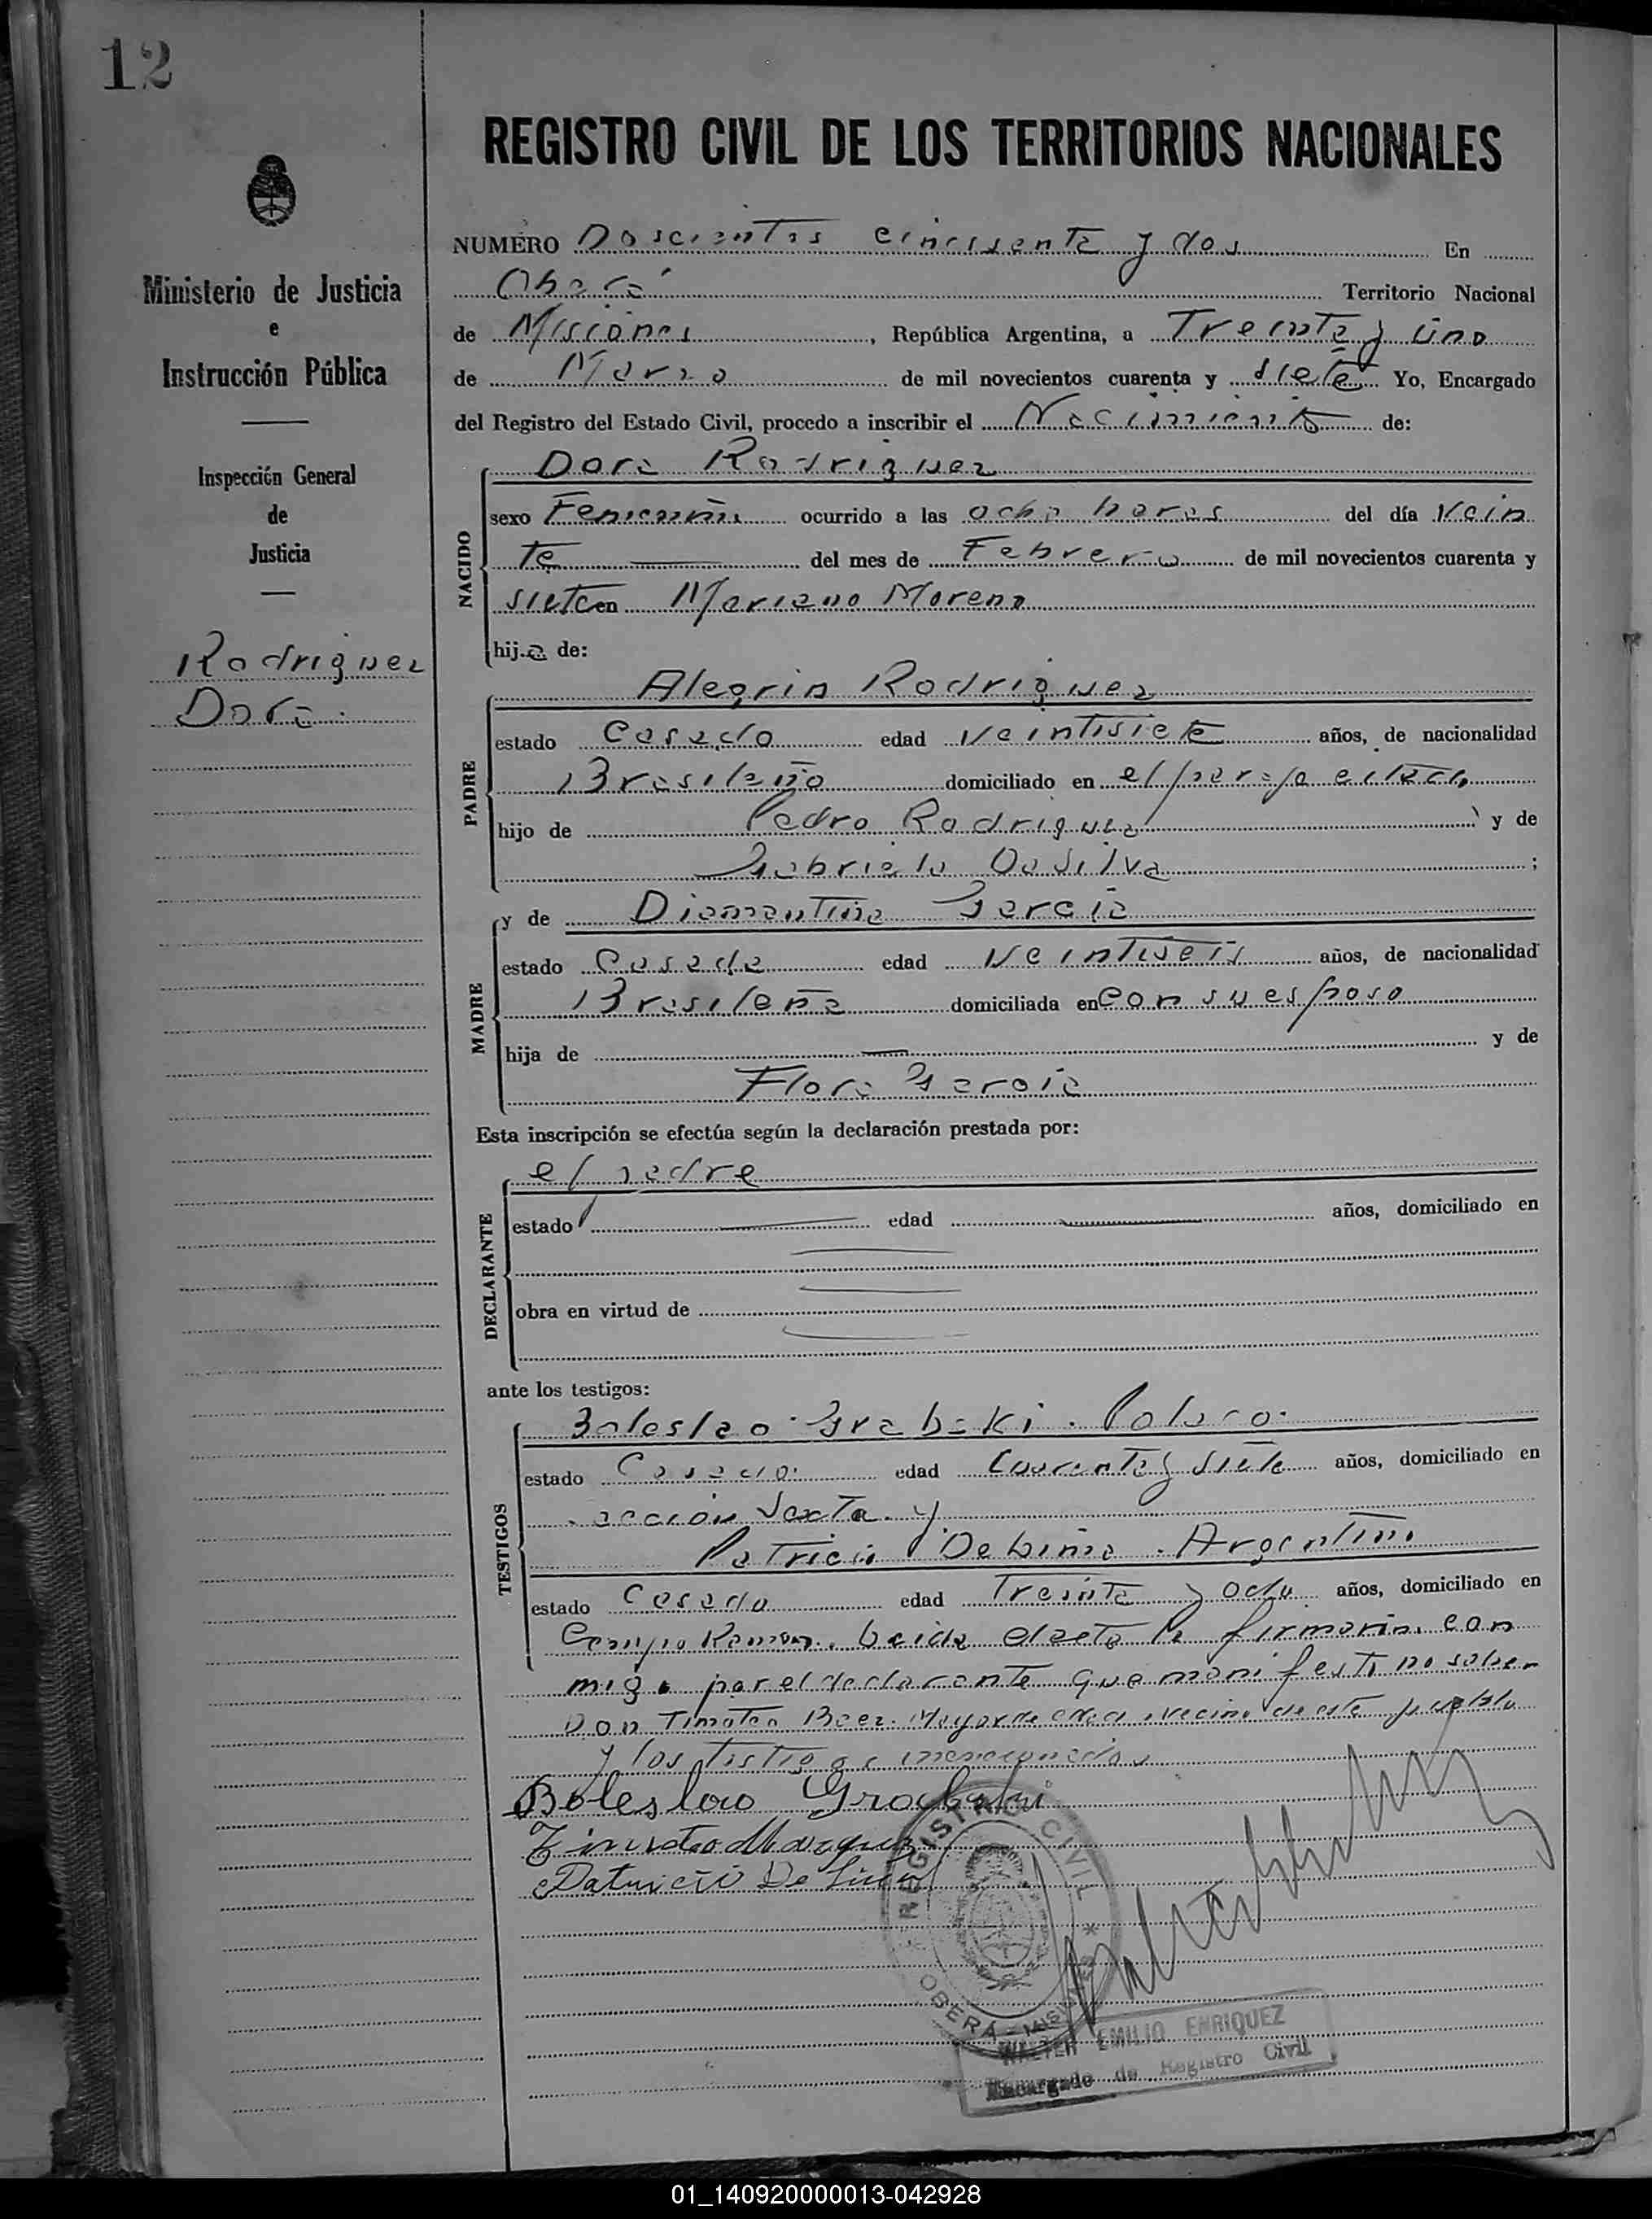 12
REGISTRO CIVIL DE LOS TERRITORIOS NACIONALES
Ministerio de Justicia
e
Instrucción Pública
Inspección General
de
Justicia
Rodriguez
Dora
NUMERO Doscientos cincuenta y dos En
Oberá Territorio Nacional
de Misiones, República Argentina, a Treinta y uno
de Marzo de mil novecientos cuarenta y siete Yo, Encargado
del Registro del Estado Civil, procedo a inscribir el Nacimiento de:
NACIDO
Dora Rodriguez
sexo Femenino ocurrido a las ocho horas del día Vein
te del mes de Febrero de mil novecientos cuarenta y
siete en Mariano Moreno
hija de:
PADRE
Alegrin Rodriguez
estado Casado edad Veintisiete años, de nacionalidad
Brasileño domiciliado en el paraje citado
hijo de Pedro Rodriguez y de
Gabriela Da Silva ;
MADRE
y de Diamantina Garcia
estado Casada edad Veintiseis años, de nacionalidad
Brasileña domiciliada en con su esposo
hija de — y de
Flora Garcia
Esta inscripción se efectúa según la declaración prestada por:
DECLARANTE
el padre
estado edad años, domiciliado en
obra en virtud de
ante los testigos:
TESTIGOS
Boleslao Grabski. Polaco.
estado Casado edad Cuarenta y siete años, domiciliado en
seccion Sexta. y
Patricio Debima. Argentino
estado Casado edad Treinta y ocho años, domiciliado en
Campo Ramon. Leida el acta la firmaron con
migo por el declarante que manifestó no saber
Don Timoteo Mayor de edad vecino de este pueblo
y los testigos mencionados
Boleslao
Patricio De
REGISTRO CIVIL
OBERA - MISIONES
WALTER EMILIO ENRIQUEZ
Encargado de Registro Civil
01_140920000013-042928